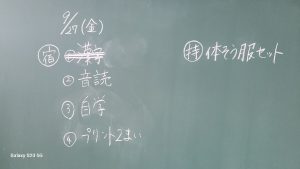 9/27(金)
宿 ①漢字
②音読
③自学
④プリント2まい
持 体そう服セット
Galaxy S23 5G